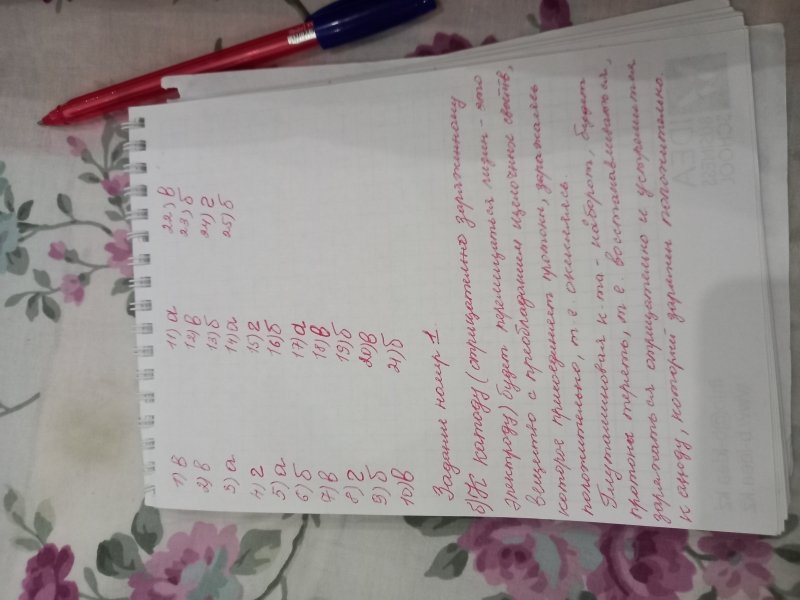 1) В
2) В
3) а
4) г
5) а
6) Б
7) В
8) г
9) Б
10) В
11) а
12) В
13) Б
14) а
15) г
16) Б
17) а
18) В
19) Б
20) В
21) Б
22) В
23) Б
24) г
25) Б
Задание номер 1.
К катоду (отрицательно заряженному
электроду) будет перемещаться лизин - это
вещество с преобладанием щелочных свойств,
которое присоединяет протоны, заряжаясь
положительно, т.е. окисляясь.
Глутаминовая к-та - наоборот, будет
протоны терять, т.е. восстанавливаться,
заряжаться отрицательно и устремится
к аноду, который заряжен положительно.